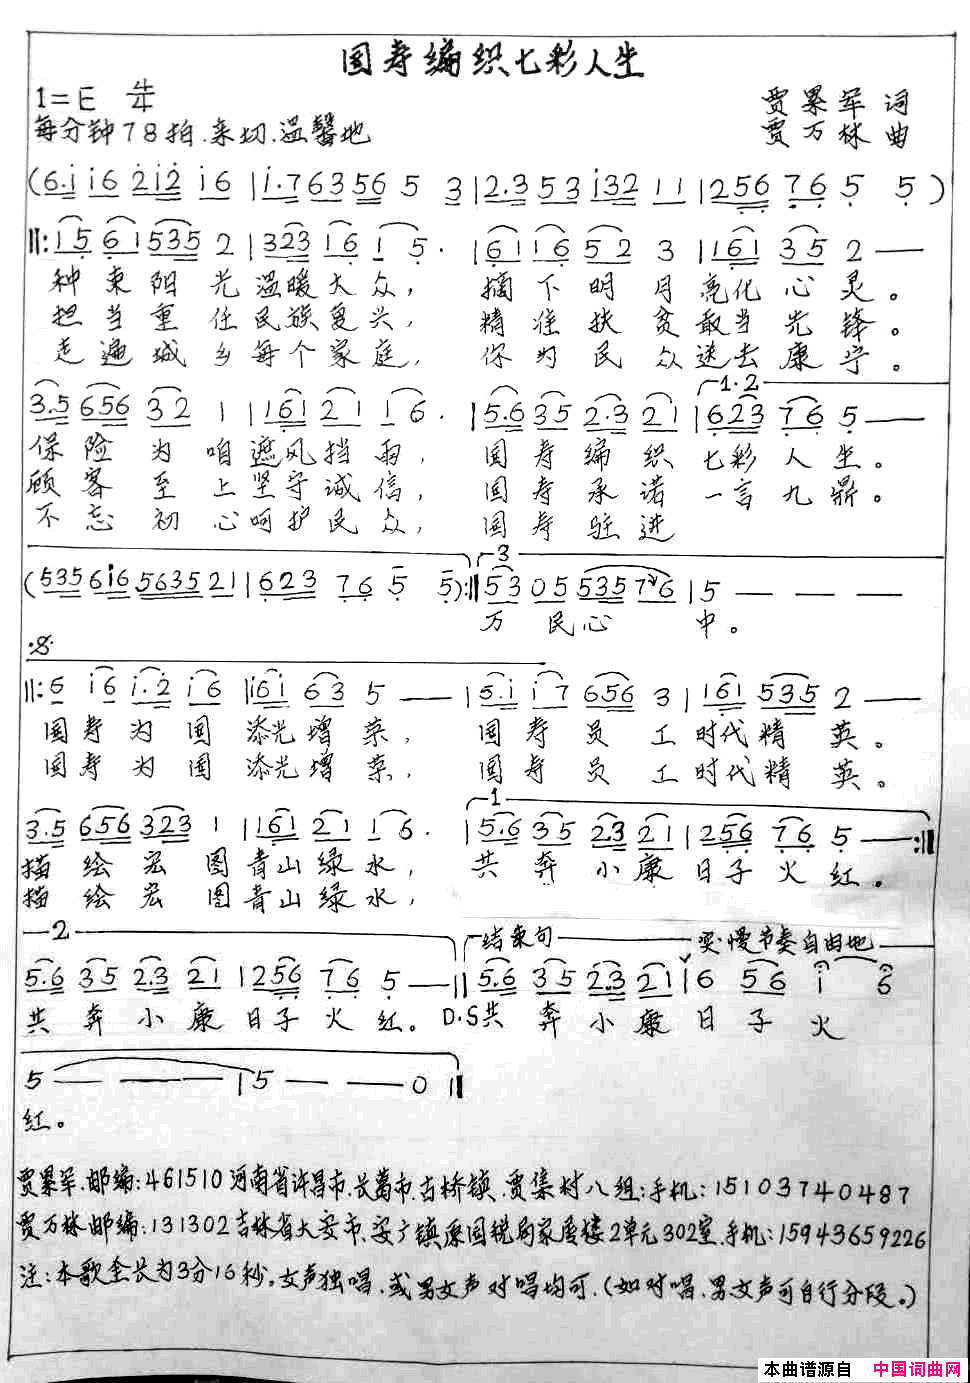 国寿编织七彩人生
1=E 4/4
贾累军 词
每分钟78拍.亲切.温馨地
贾万林 曲
(6.i i6 2i2 i6 | i.7 63 56 5 3 | 2.3 53 i32 11 | 256 76 5 5)
||: 15 61 535 2 | 323 16 1 5. | 61 16 52 3 | 161 35 2 — —
种束阳光温暖大众, 摘下明月亮化心灵。
担当重任民族复兴, 精准扶贫敢当先锋。
走遍城乡每个家庭, 你为民众送去康宁。
1.2
3.5 656 32 1 | 161 21 16. | 5.6 35 2.3 21 | 623 76 5 — —
保险为咱遮风挡雨, 国寿编织七彩人生。
顾客至上坚守诚信, 国寿承诺一言九鼎。
不忘初心呵护民众, 国寿驻进
3
(535 6i6 5635 21 | 623 76 5 5) :|| 53 05 535 7 6 | 5 — — —
万民心中。
||: 6 i6 i.2 i6 | i6i 63 5 — — | 5.i i7 656 3 | 161 535 2 — —
国寿为国添光增荣, 国寿员工时代精英。
国寿为国添光增荣, 国寿员工时代精英。
1
3.5 656 323 1 | 161 21 16. | 5.6 35 2.3 21 | 256 76 5 — — :||
描绘宏图青山绿水, 共奔小康日子火红。
描绘宏图青山绿水,
2 结束句 突.慢节奏自由地
5.6 35 2.3 21 | 256 76 5 — — || 5.6 35 2.3 21 | 6 56 i 6
共奔小康日子火红。D.S共奔小康日子火
5 — — — | 5 — — 0 ||
红。
贾累军.邮编:461510河南省许昌市.长葛市.古桥镇.贾集村八组:手机:15103740487
贾万林邮编:131302吉林省大安市.安广镇原国税局家属楼2单元302室.手机:15943659226
注:本歌全长为3分16秒。女声独唱.或男女声对唱均可.(如对唱.男女声可自行分段。)
本曲谱源自 中国词曲网